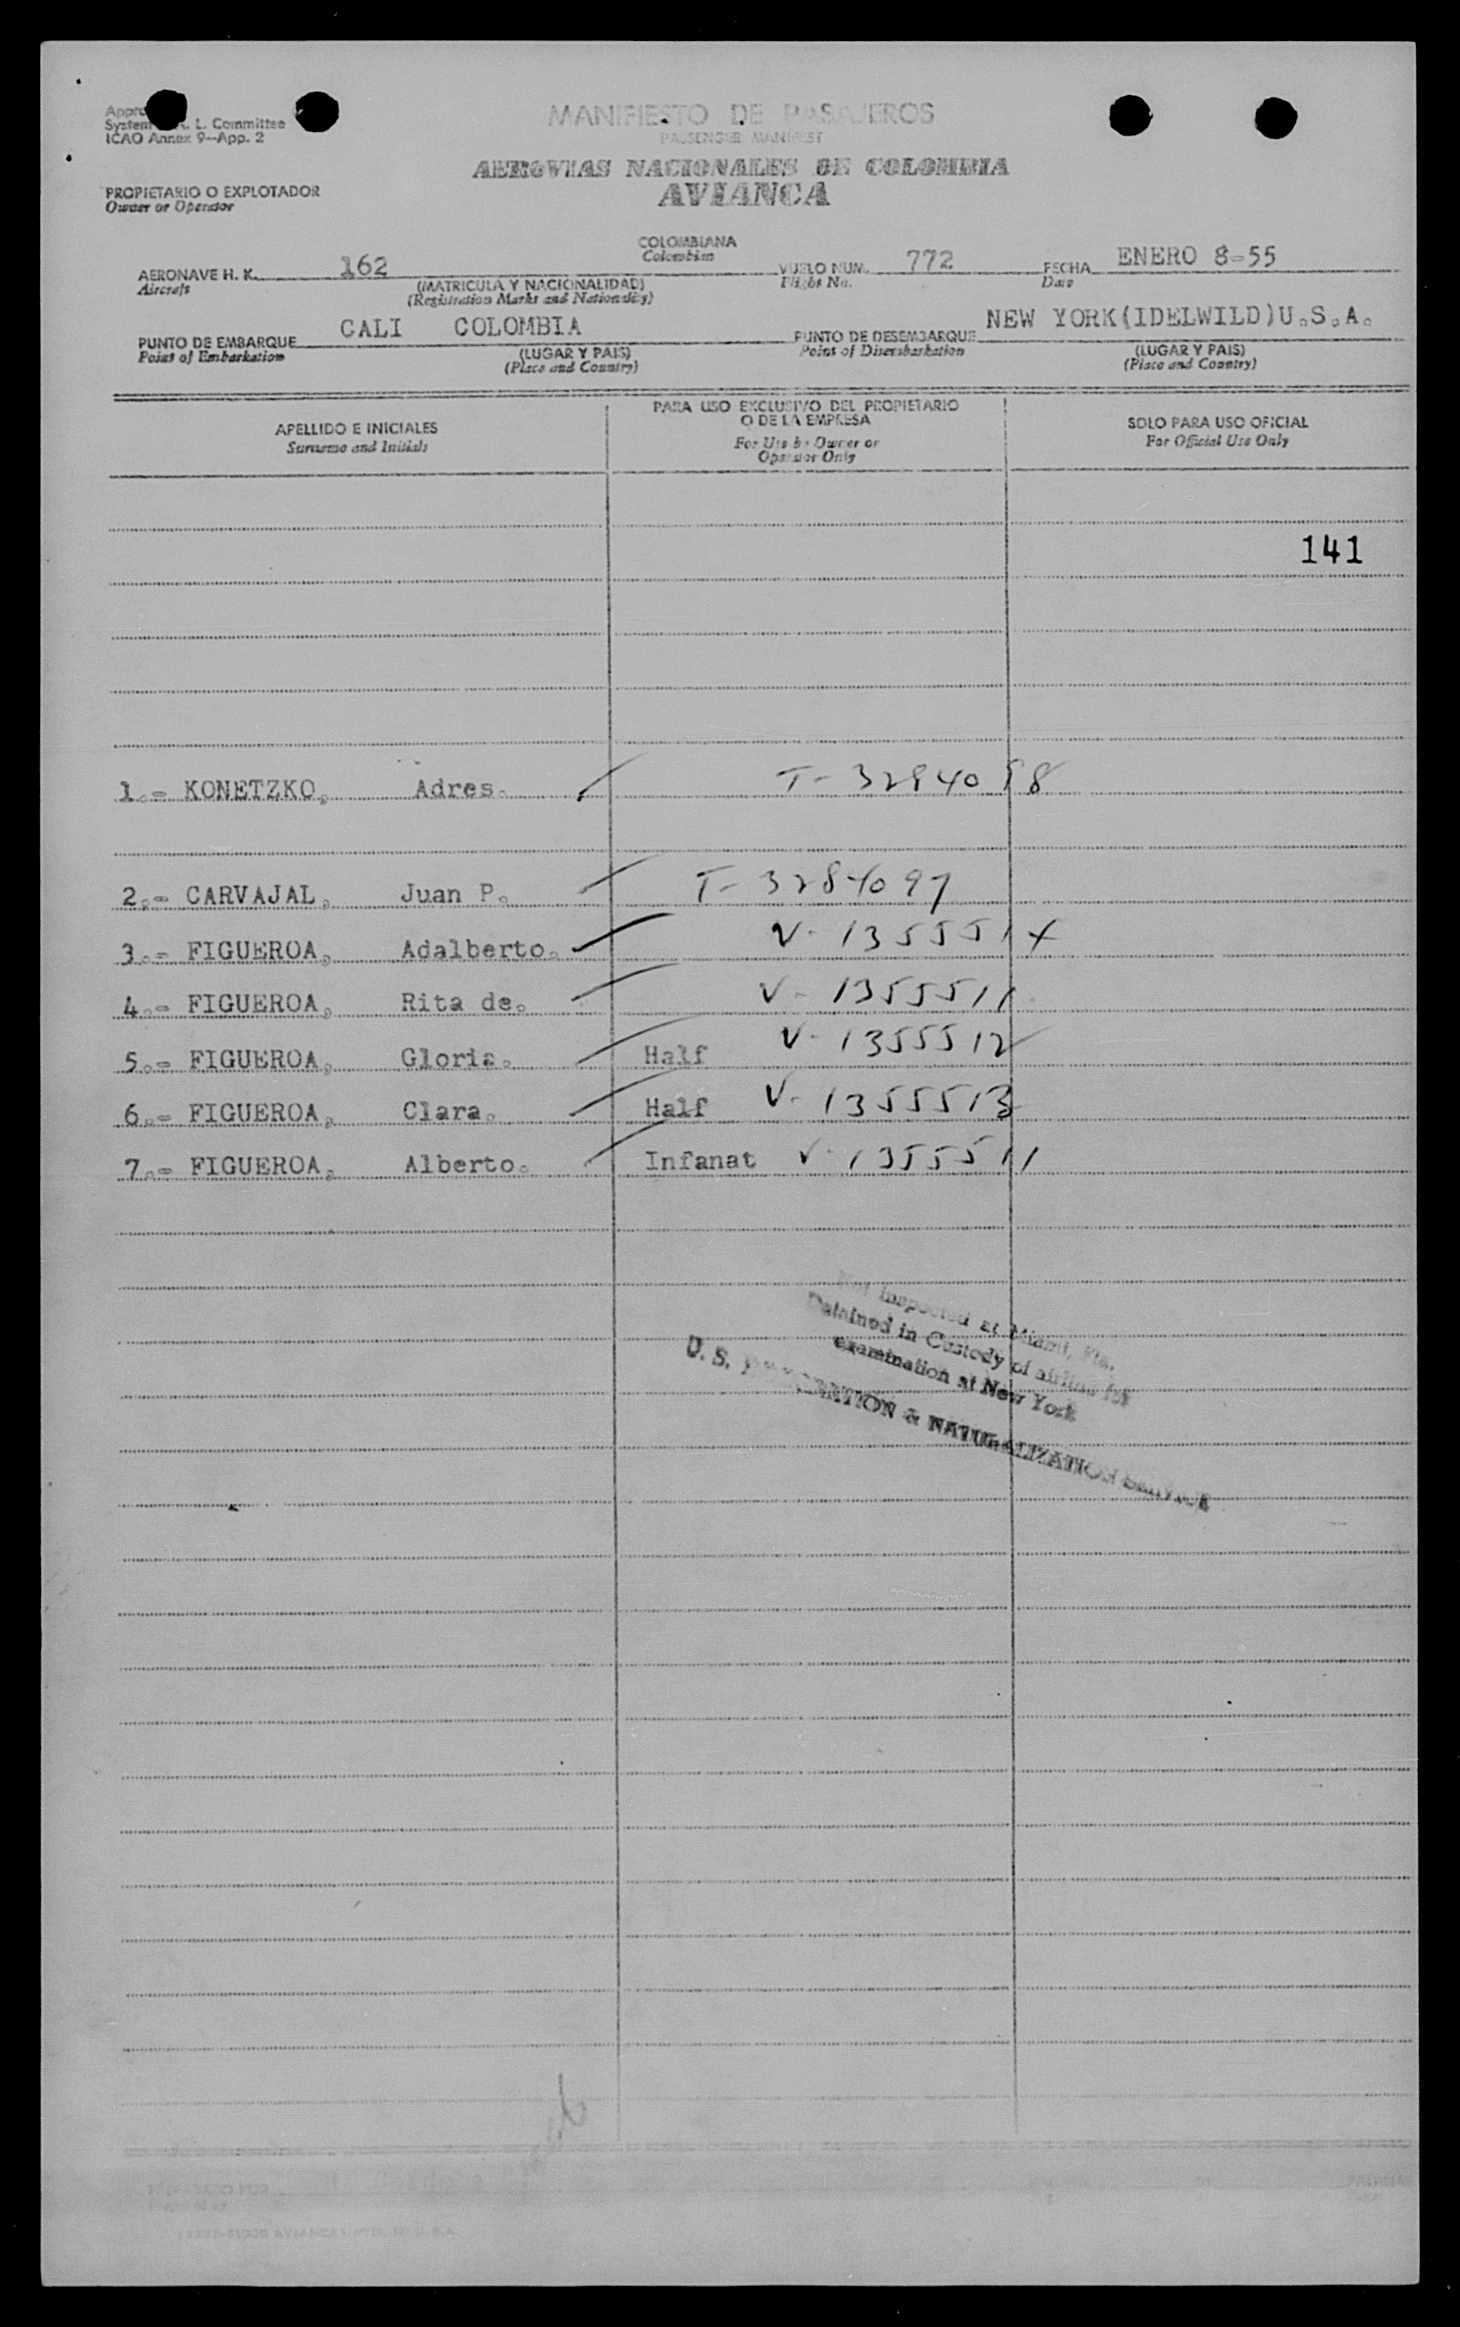 MANIFIESTO DE PASAJEROS
PASSENGER MANIFEST
AEROVIAS NACIONALES DE COLOMBIA
AVIANCA
L. Committee
ICAO Annex 9—App. 2
PROPIETARIO O EXPLOTADOR
Owner or Operator
COLOMBIANA
Colombian
AERONAVE H. K. 162 VUELO NUM. 772 FECHA ENERO 8-55
Aircraft (MATRICULA Y NACIONALIDAD) Flight No. Date
(Registration Marks and Nationality)
PUNTO DE EMBARQUE CALI COLOMBIA PUNTO DE DESEMBARQUE NEW YORK(IDELWILD)U.S.A.
Point of Embarkation (LUGAR Y PAIS) Point of Disembarkation (LUGAR Y PAIS)
(Place and Country) (Place and Country)
APELLIDO E INICIALES
Surname and Initials
PARA USO EXCLUSIVO DEL PROPIETARIO
O DE LA EMPRESA
For Use by Owner or
Operator Only
SOLO PARA USO OFICIAL
For Official Use Only
141
1.- KONETZKO, Adres.
2.- CARVAJAL, Juan P. T-3284097
3.- FIGUEROA, Adalberto. V-1355514
4.- FIGUEROA, Rita de. V-1355511
5.- FIGUEROA, Gloria. Half V-1355512
6.- FIGUEROA, Clara. Half V-1355513
7.- FIGUEROA, Alberto. Infanat V-1355511
Not inspected at Miami, Fla.
Detained in Custody of airline for
examination at New York
U. S. IMMIGRATION & NATURALIZATION SERVICE